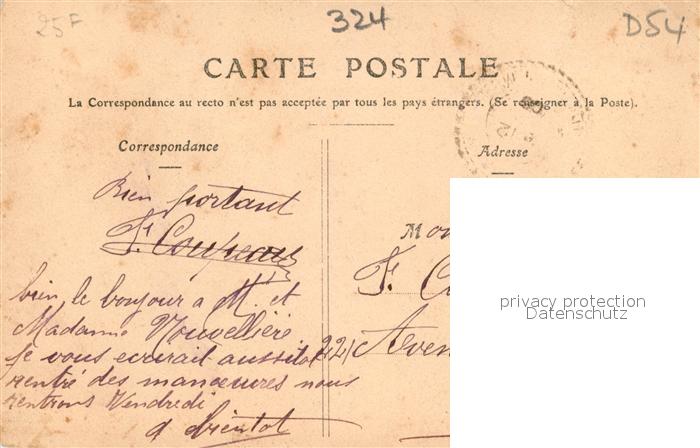 25F 324 D54
CARTE POSTALE
La Correspondance au recto n'est pas acceptée par tous les pays étrangers. (Se renseigner à la Poste).
Correspondance
Adresse
Bien portant
bien le bonjour a Mr et
Madame Nouvellière
je vous ecrirait aussitot
rentré des manœuvres nous
rentrons Vendredi
a bientot
Mon
F. Co
22 Aven
privacy protection
Datenschutz